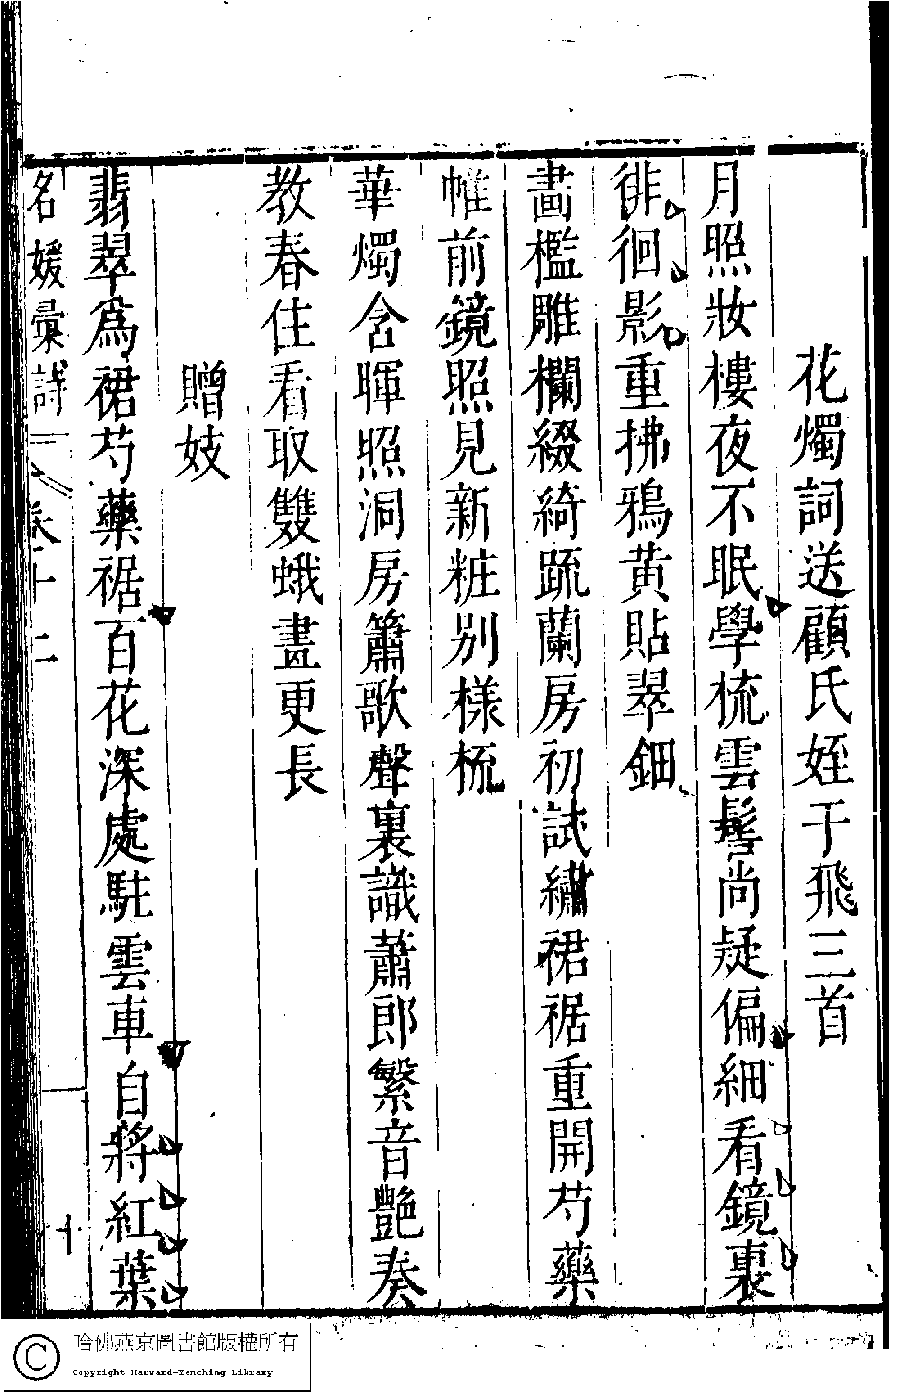 花燭詞送顧氏姪于飛三首
月照妝樓夜不眠學梳雲髻尚疑偏細看鏡裏
徘徊影重拂鴉黃貼翠鈿
畫檻雕欄綴綺疏蘭房初試繡裙裾重開芍藥
帷前鏡照見新粧別樣梳
華燭含暉照洞房簫歌聲裏識蕭郎繁音艷奏
教春住看取雙蛾畫更長
贈妓
翡翠為裙芍藥裾百花深處駐雲車自將紅葉
名媛彙詩 卷十二 十
哈佛燕京圖書館版權所有
Copyright Harvard-Yenching Library